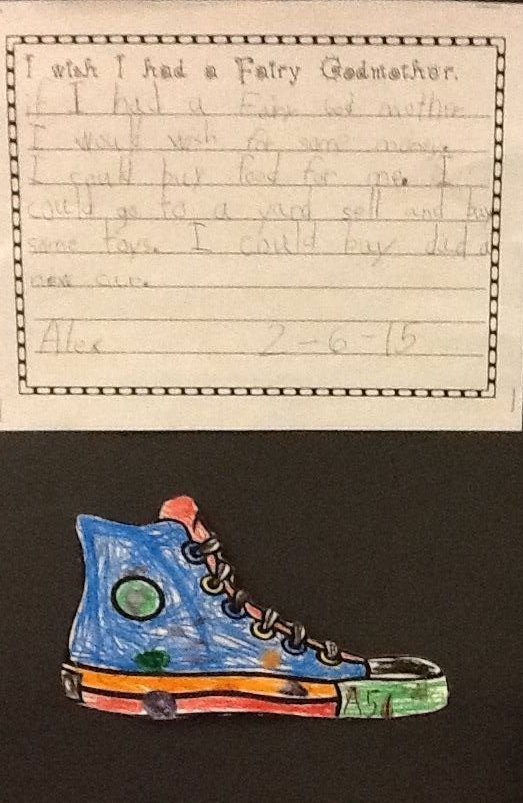 I wish I had a Fairy Godmother.
if I had a Fairy God mother
I would wish for some money.
I could buy food for me. I
could go to a yard sell and buy
some toys. I could buy dad a
new car.
Alex 2-6-15